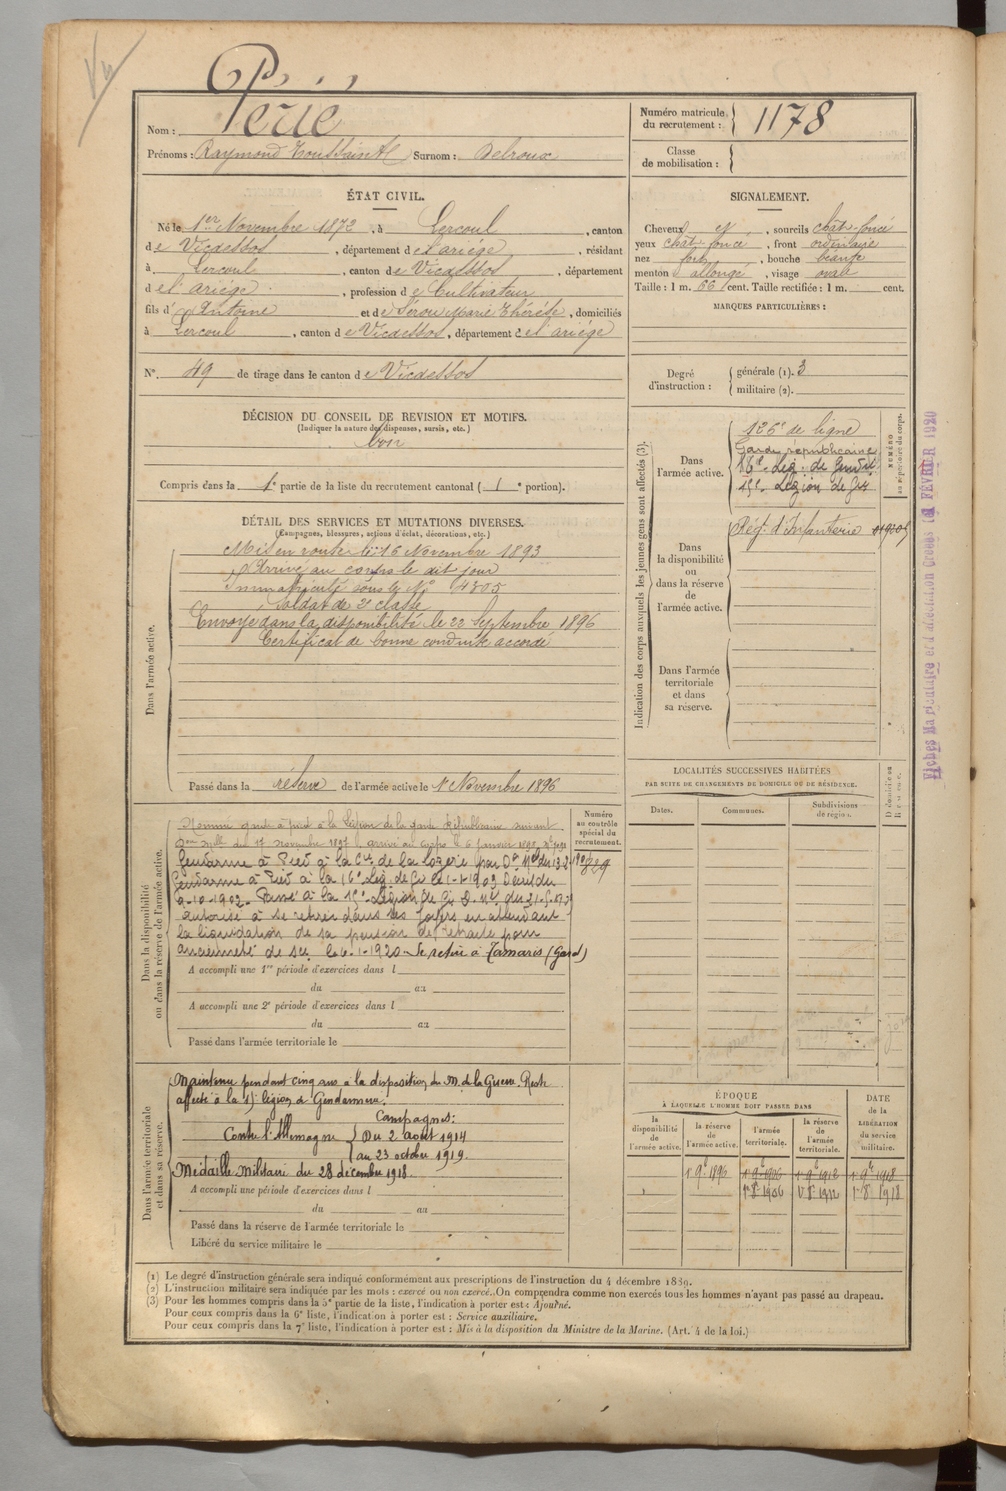 Nom : Périé
Prénoms : Raymond Toussaint Surnom : Debroux
Numéro matricule du recrutement : 1178
Classe de mobilisation :
ÉTAT CIVIL.
Né le 1er Novembre 1872, à Lercoul, canton
de Vicdessos, département de l'ariège, résidant
à Lercoul, canton de Vicdessos, département
de l'ariège, profession de Cultivateur
fils d'Antoine et de Sérou Marie Thérèse, domiciliés
à Lercoul, canton de Vicdessos, département de l'ariège
N° 49 de tirage dans le canton de Vicdessos
SIGNALEMENT.
Cheveux et, sourcils chât-foncé
yeux chât-foncé, front ordinaire
nez fort, bouche béante
menton allongé, visage ovale
Taille : 1 m. 66 cent. Taille rectifiée : 1 m. cent.
MARQUES PARTICULIÈRES :
Degré d'instruction : générale (1). 3
militaire (2).
DÉCISION DU CONSEIL DE REVISION ET MOTIFS.
(Indiquer la nature des dispenses, sursis, etc.)
bon
Compris dans la 1e partie de la liste du recrutement cantonal (1e portion).
DÉTAIL DES SERVICES ET MUTATIONS DIVERSES.
(Campagnes, blessures, actions d'éclat, décorations, etc.)
Dans l'armée active.
Mis en route le 16 Novembre 1893
Arrivé au corps le dit jour
Immatriculé sous le N° 4805
Soldat de 2e classe
Envoyé dans la disponibilité le 22 Septembre 1896
Certificat de bonne conduite accordé
Passé dans la réserve de l'armée active le 1er Novembre 1896
Indication des corps auxquels les jeunes gens sont affectés (3).
NUMÉRO au répertoire du corps.
Dans l'armée active.
126e de ligne
Garde républicaine
16e Lég. de Gendie
15e Légion de Gie
Dans la disponibilité ou dans la réserve de l'armée active.
Rég. d'Infanterie
Dans l'armée territoriale et dans sa réserve.
Fiches Matriculaire et d'affectation Créées le FÉVRIER 1920
LOCALITÉS SUCCESSIVES HABITÉES
PAR SUITE DE CHANGEMENTS DE DOMICILE OU DE RÉSIDENCE.
Dates. Communes. Subdivisions de région.
Dans la disponibilité ou dans la réserve de l'armée active.
Numéro au contrôle spécial du recrutement.
Nommé garde à pied à la Légion de la garde Républicaine suivant
du 17 novembre 1897, arrivé au corps le 6 janvier 1898
Gendarme à Pied à la Cie de la Lozère par Don Mlle du
829
Gendarme à Pied à la 16e Lég. de Gie le 1-1-1903 Décret du
9-10-1902. Passé à la 15e Légion de Gie D. Mle du
autorisé à se retirer dans ses foyers en attendant
la liquidation de sa pension de retraite pour
ancienneté de sce le 6-1-1920 Se retire à Tamaris (Gard)
A accompli une 1re période d'exercices dans l
du au
A accompli une 2e période d'exercices dans l
du au
Passé dans l'armée territoriale le
Dans l'armée territoriale et dans sa réserve.
Maintenu pendant cinq ans à la disposition du M. de la Guerre. Reste
affecté à la 15 légion de Gendarmerie.
Campagnes:
Contre l'Allemagne { Du 2 août 1914
au 23 octobre 1919.
Médaille Militaire du 28 décembre 1918.
A accompli une période d'exercices dans l
du au
Passé dans la réserve de l'armée territoriale le
Libéré du service militaire le
ÉPOQUE
À LAQUELLE L'HOMME DOIT PASSER DANS
la disponibilité de l'armée active.
la réserve de l'armée active.
l'armée territoriale.
la réserve de l'armée territoriale.
DATE de la LIBÉRATION du service militaire.
1er 9e 1896 1er 9e 1906 1er 9e 1912 1er 9e 1918
1er 8e 1906 1er 8e 1912 1er 8e 1918
(1) Le degré d'instruction générale sera indiqué conformément aux prescriptions de l'instruction du 4 décembre 1889.
(2) L'instruction militaire sera indiquée par les mots : exercé ou non exercé. On comprendra comme non exercés tous les hommes n'ayant pas passé au drapeau.
(3) Pour les hommes compris dans la 5e partie de la liste, l'indication à porter est : Ajourné.
Pour ceux compris dans la 6e liste, l'indication à porter est : Service auxiliaire.
Pour ceux compris dans la 7e liste, l'indication à porter est : Mis à la disposition du Ministre de la Marine. (Art. 4 de la loi.)